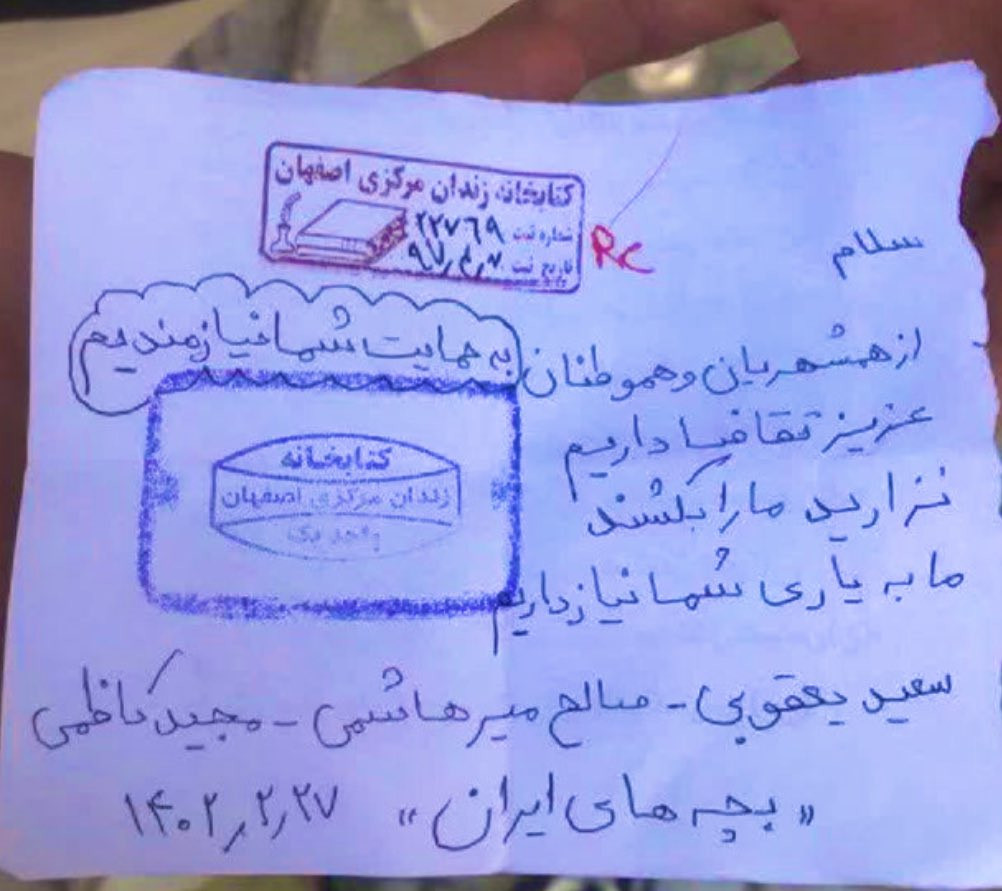 کتابخانه زندان مرکزی اصفهان
شماره ثبت ۲۲۷۶۹
تاریخ ثبت
RC
سلام
از همشهریان و هموطنان
به حمایت شما نیازمندیم
عزیز تقاضا داریم
نزارید ما را بکشند
ما به یاری شما نیاز داریم
کتابخانه
زندان مرکزی اصفهان
واحد یک
سعید یعقوبی - صالح میرهاشمی - مجید کاظمی
« بچه های ایران »
۱۴۰۲٫۲٫۲۷